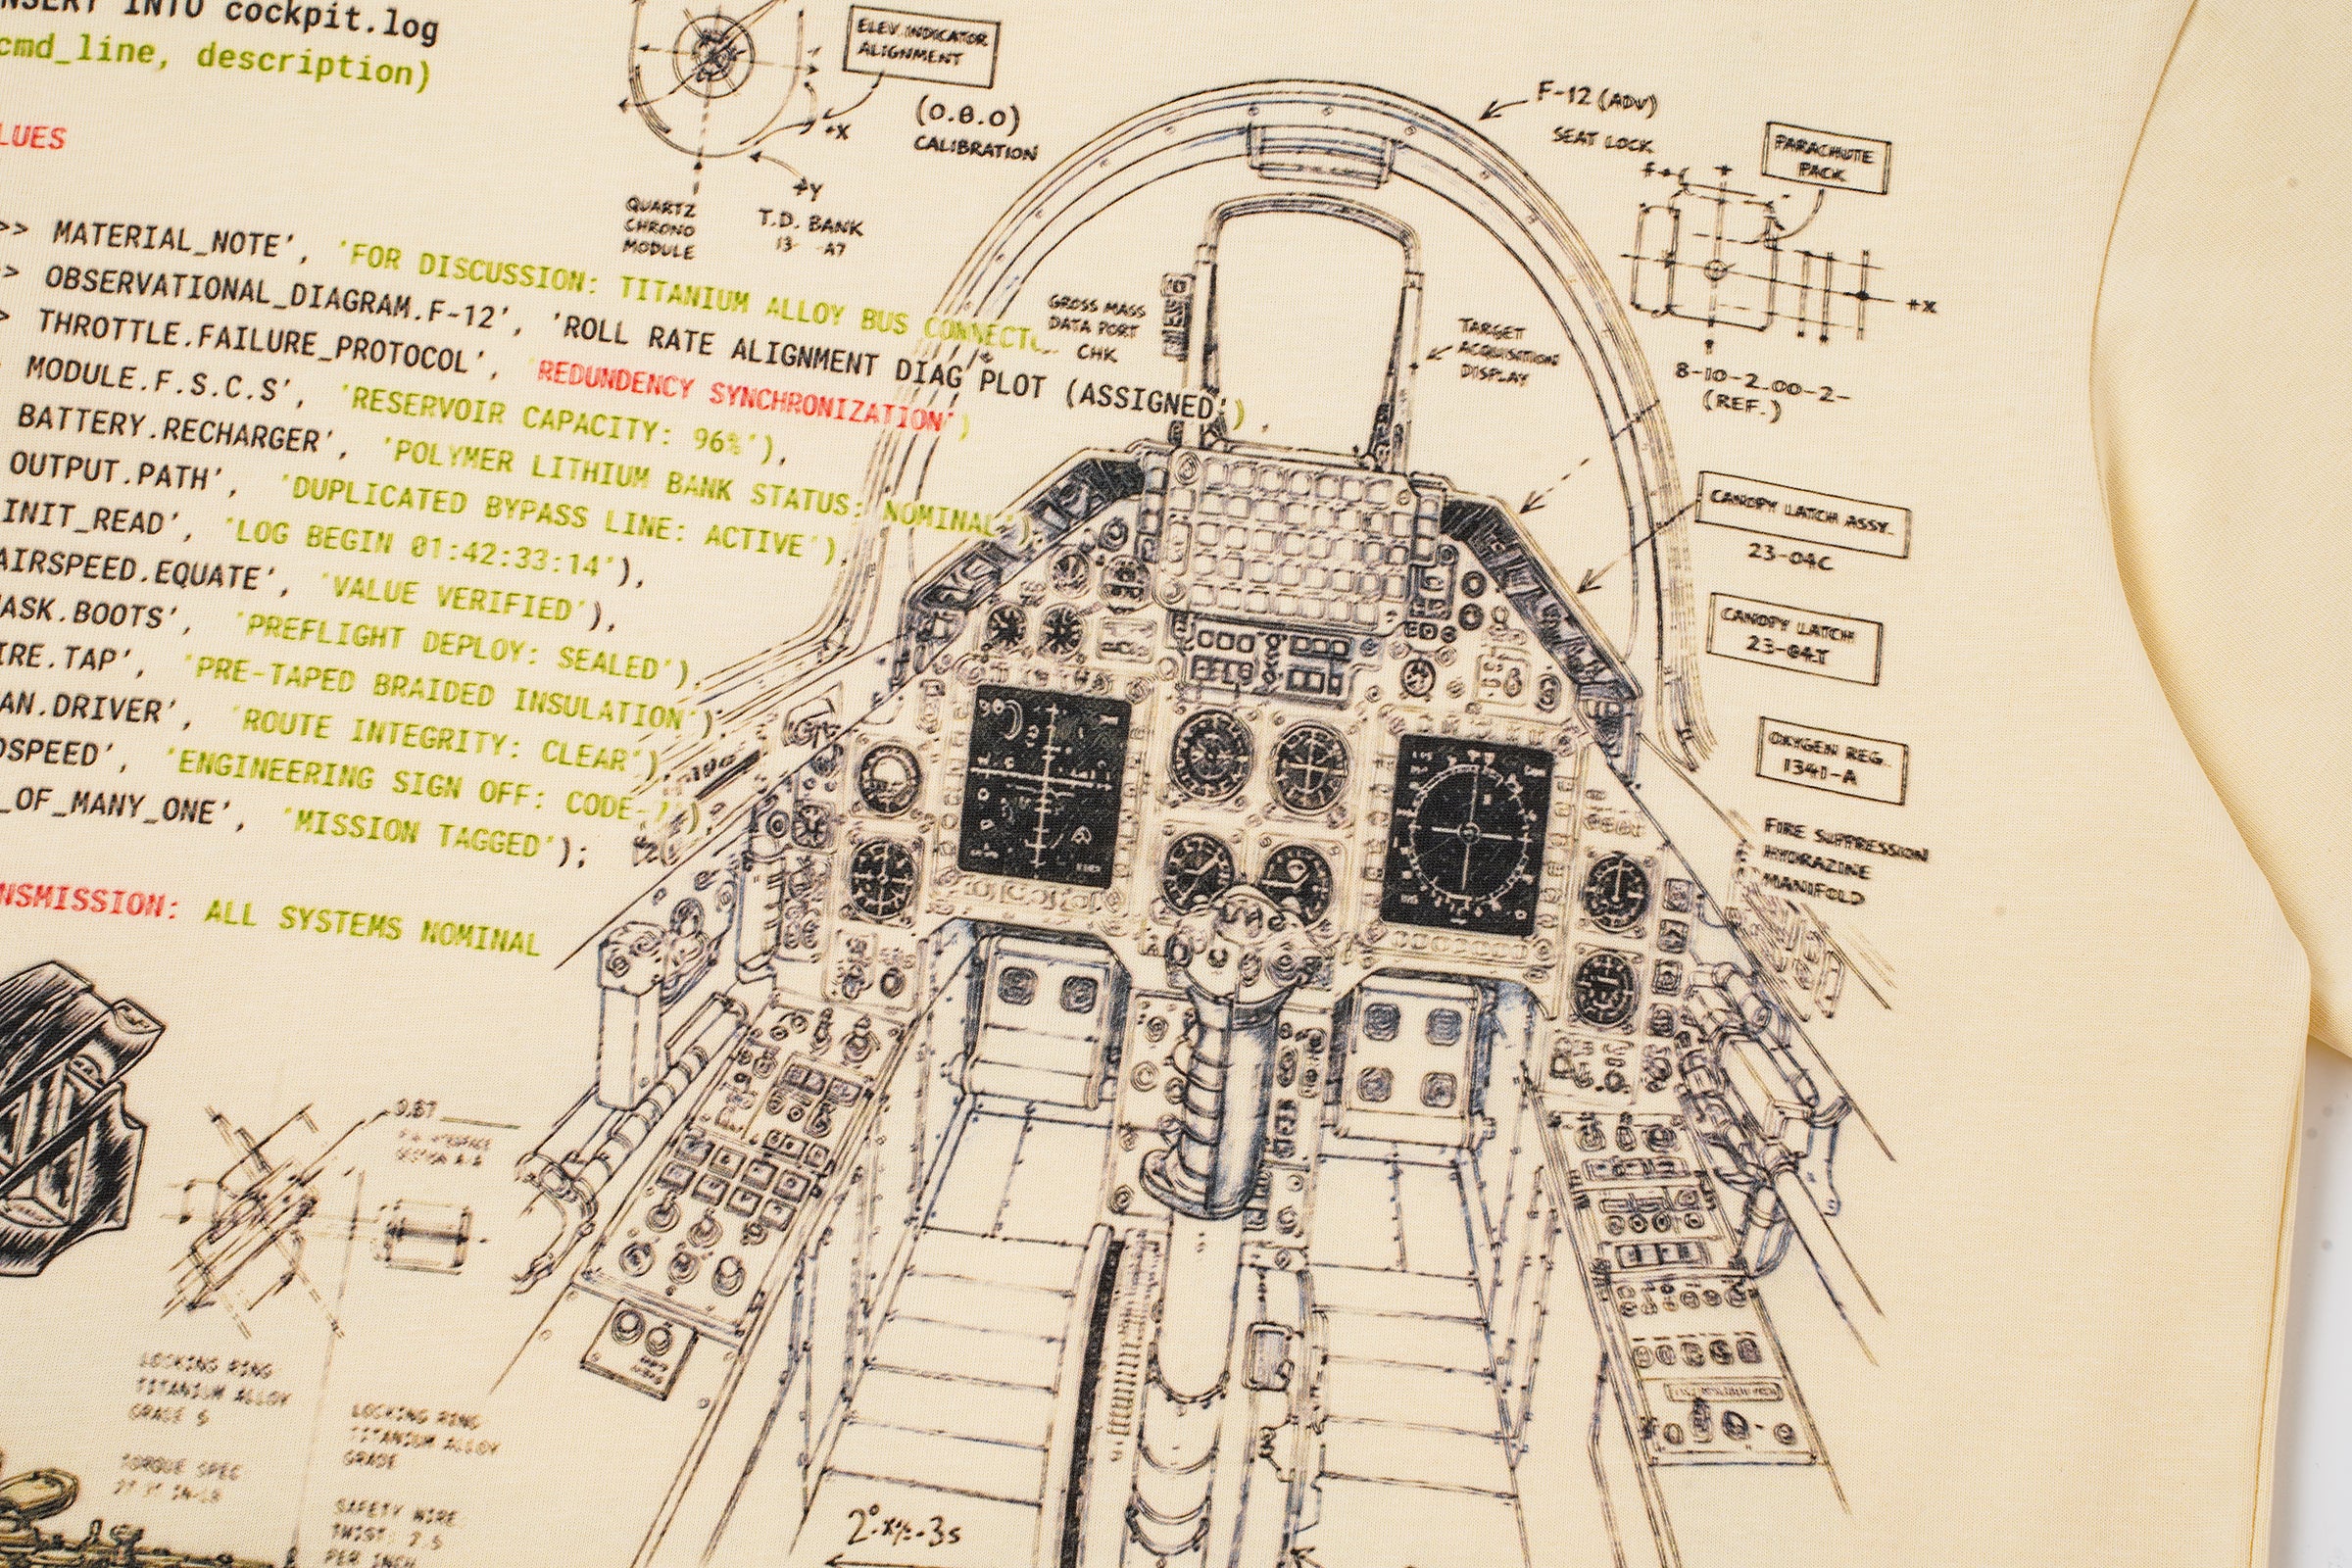 INSERT INTO cockpit.log
cmd_line, description)
LUES
>> MATERIAL_NOTE', 'FOR DISCUSSION: TITANIUM ALLOY BUS CONNECT
> OBSERVATIONAL_DIAGRAM.F-12', 'ROLL RATE ALIGNMENT DIAG PLOT (ASSIGNED'),
> THROTTLE.FAILURE_PROTOCOL', 'REDUNDENCY SYNCHRONIZATION')
MODULE.F.S.C.S', 'RESERVOIR CAPACITY: 96%'),
BATTERY.RECHARGER', 'POLYMER LITHIUM BANK STATUS: NOMINAL'),
OUTPUT.PATH', 'DUPLICATED BYPASS LINE: ACTIVE'),
INIT_READ', 'LOG BEGIN 01:42:33:14'),
AIRSPEED.EQUATE', 'VALUE VERIFIED'),
ASK.BOOTS', 'PREFLIGHT DEPLOY: SEALED'),
IRE.TAP', 'PRE-TAPED BRAIDED INSULATION'),
AN.DRIVER', 'ROUTE INTEGRITY: CLEAR'),
DSPEED', 'ENGINEERING SIGN OFF: CODE-7'),
_OF_MANY_ONE', 'MISSION TAGGED');
NSMISSION: ALL SYSTEMS NOMINAL
ELEV. INDICATOR
ALIGNMENT
(0.8.0)
CALIBRATION
+X
+Y
QUARTZ
CHRONO
MODULE
T.D. BANK
13- -A7
F-12 (ADV)
SEAT LOCK
PARACHUTE
PACK
+X
8-10-2.00-2-
(REF.)
GROSS MASS
DATA PORT
CHK
TARGET
ACQUISITION
DISPLAY
CANOPY LATCH ASSY.
23-04C
CANOPY LATCH
23-04T
OXYGEN REG.
1341-A
FIRE SUPPRESSION
HYDRAZINE
MANIFOLD
0.87
LOCKING RING
TITANIUM ALLOY
GRADE 5
TORQUE SPEC
LOCKING RING
TITANIUM ALLOY
GRADE
SAFETY WIRE
TWIST: 7.5
PER INCH